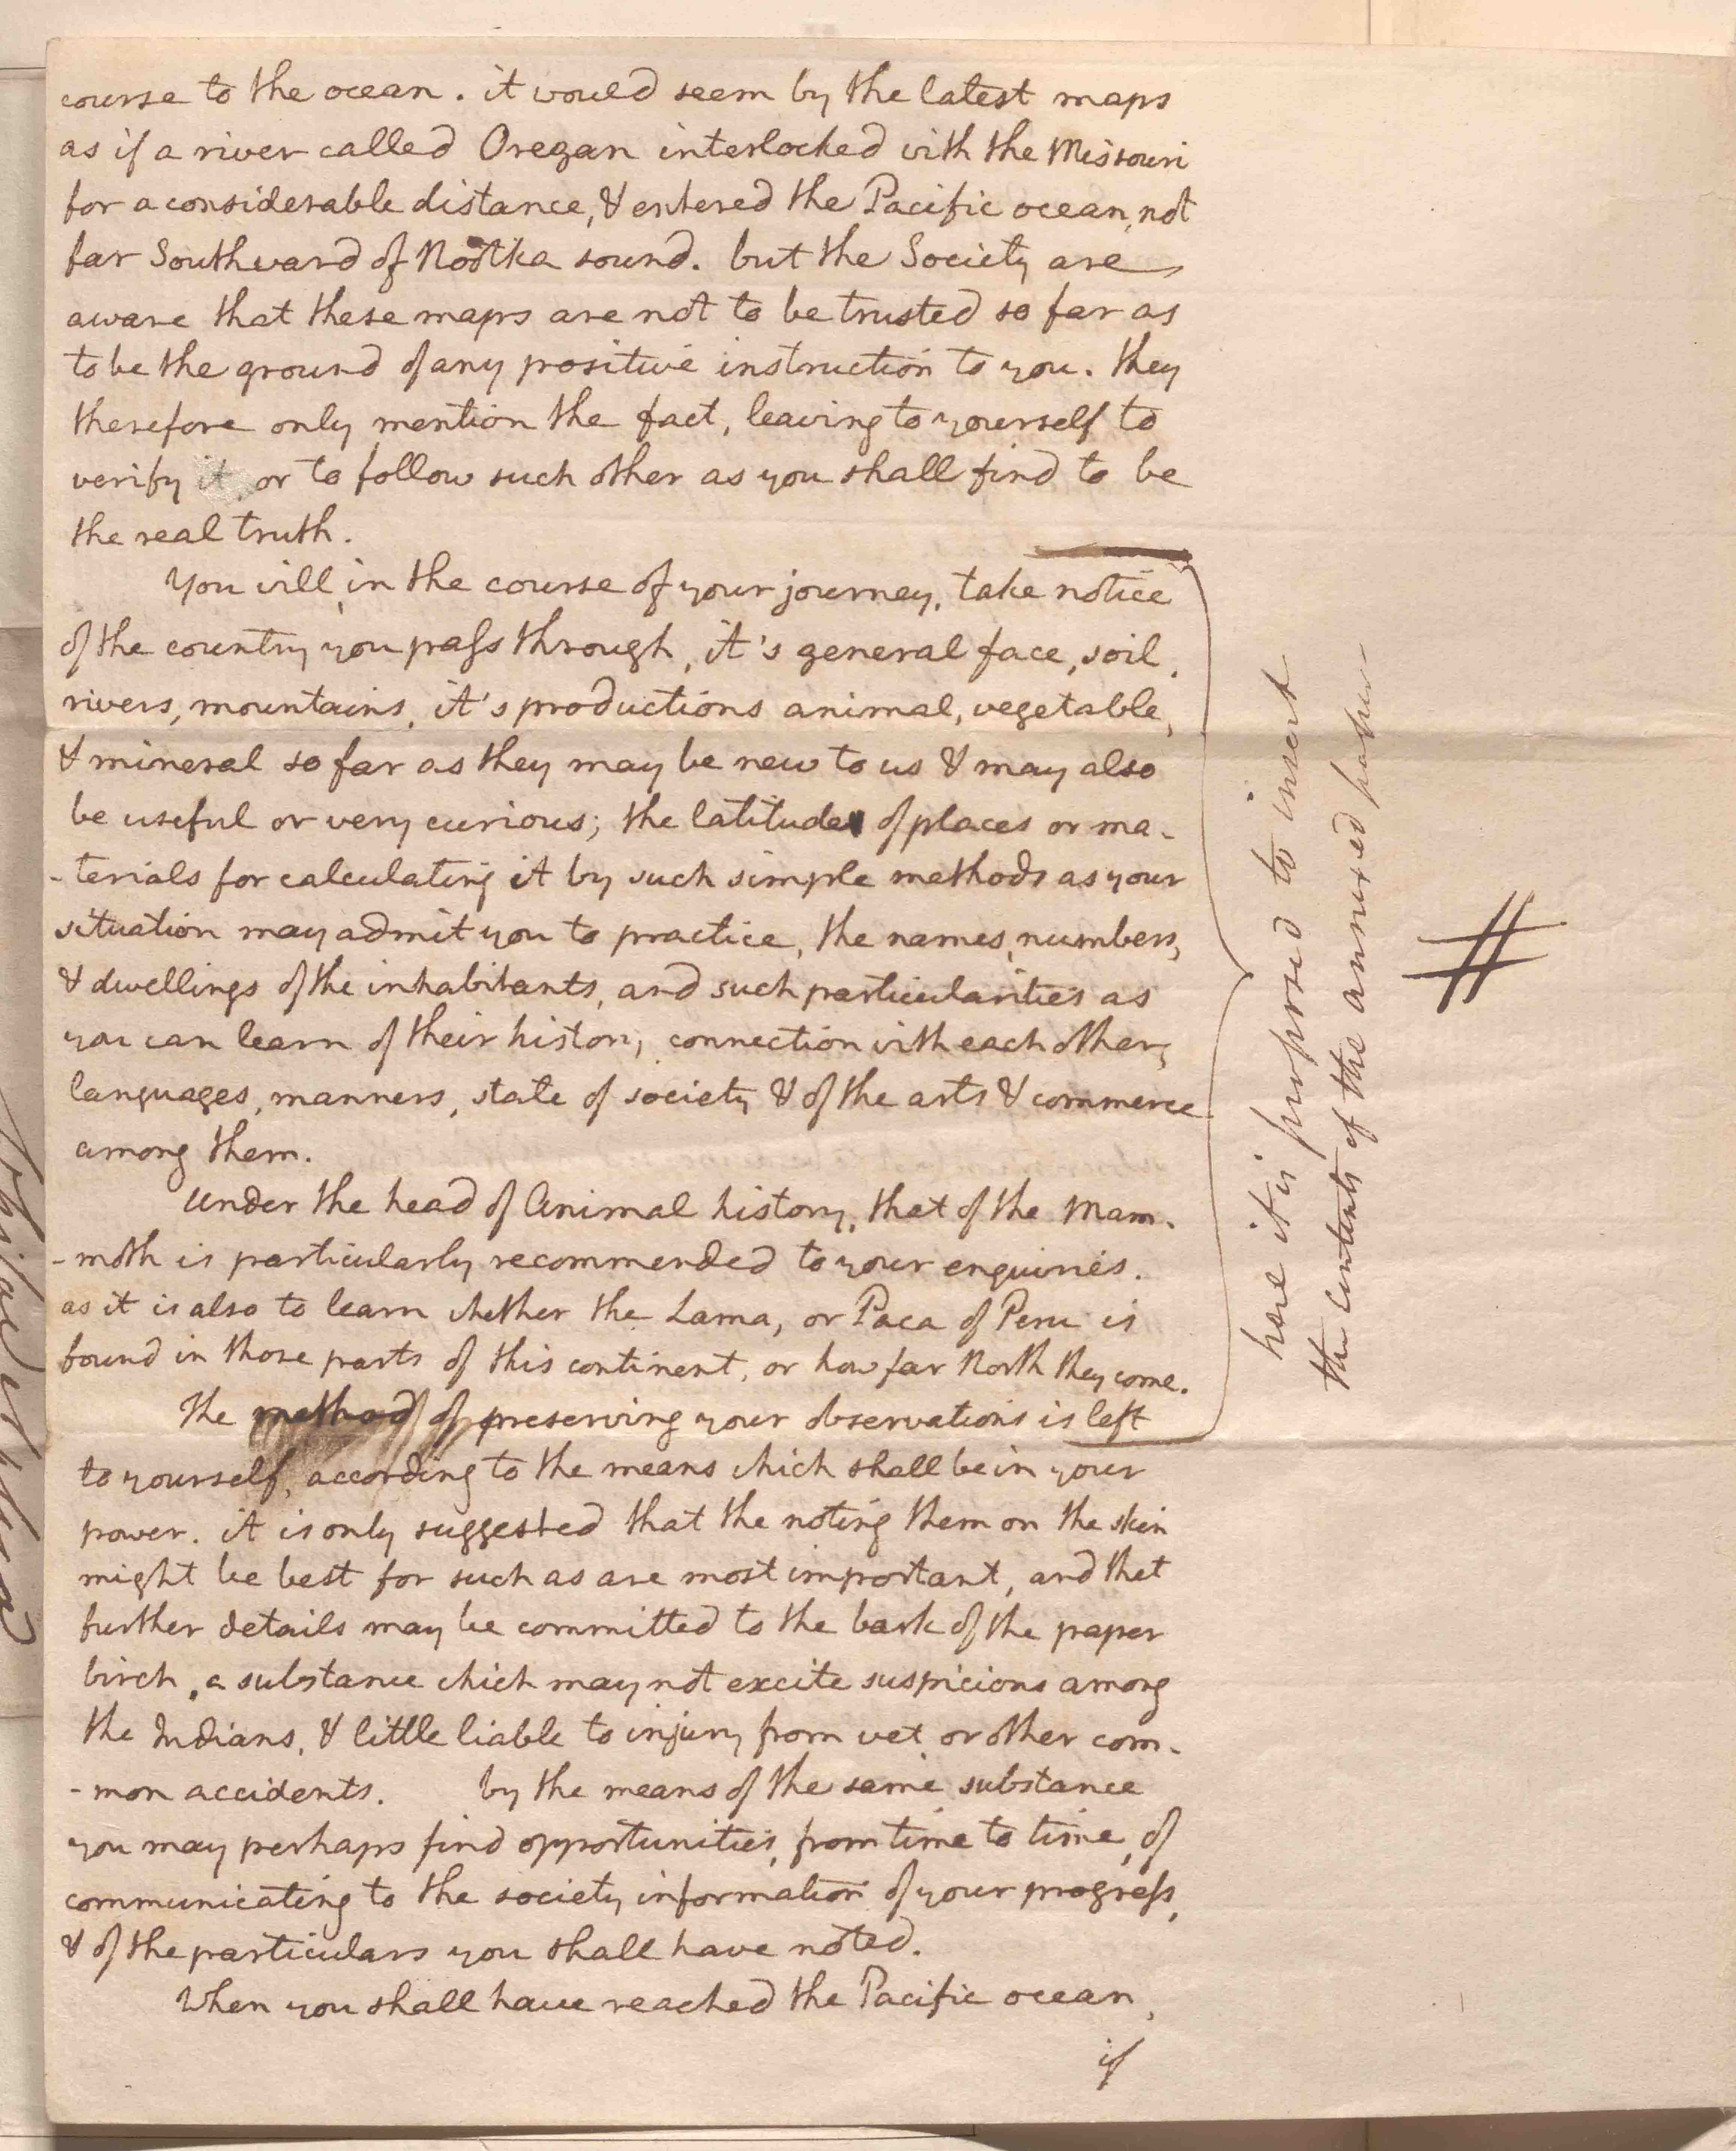 course to the ocean. it would seem by the latest maps
as if a river called Oregan interlocked with the Missouri
for a considerable distance, & entered the Pacific ocean, not
far Southward of Nootka sound. but the Society are
aware that these maps are not to be trusted so far as
to be the ground of any positive instruction to you. they
therefore only mention the fact, leaving to yourself to
verify it, or to follow such other as you shall find to be
the real truth.
You will, in the course of your journey, take notice
of the country you pass through, it's general face, soil,
rivers, mountains, it's productions animal, vegetable,
& mineral so far as they may be new to us & may also
be useful or very curious; the latitude of places or ma-
-terials for calculating it by such simple methods as your
situation may admit you to practice, the names, numbers,
& dwellings of the inhabitants, and such particularities as
you can learn of their history, connection with each other,
languages, manners, state of society & of the arts & commerce
among them.
Under the head of Animal history, that of the Mam-
-moth is particularly recommended to your enquiries.
as it is also to learn whether the Lama, or Paca of Peru is
found in those parts of this continent, or how far North they come.
The method of preserving your observations is left
to yourself, according to the means which shall be in your
power. it is only suggested that the noting them on the skin
might be best for such as are most important, and that
further details may be committed to the bark of the paper
birch, a substance which may not excite suspicions among
the Indians, & little liable to injury from wet or other com-
-mon accidents. by the means of the same substance
you may perhaps find opportunities, from time to time, of
communicating to the society information of your progress,
& of the particulars you shall have noted.
When you shall have reached the Pacific ocean,
if
here it is proposed to insert
the contents of the annexed paper
#